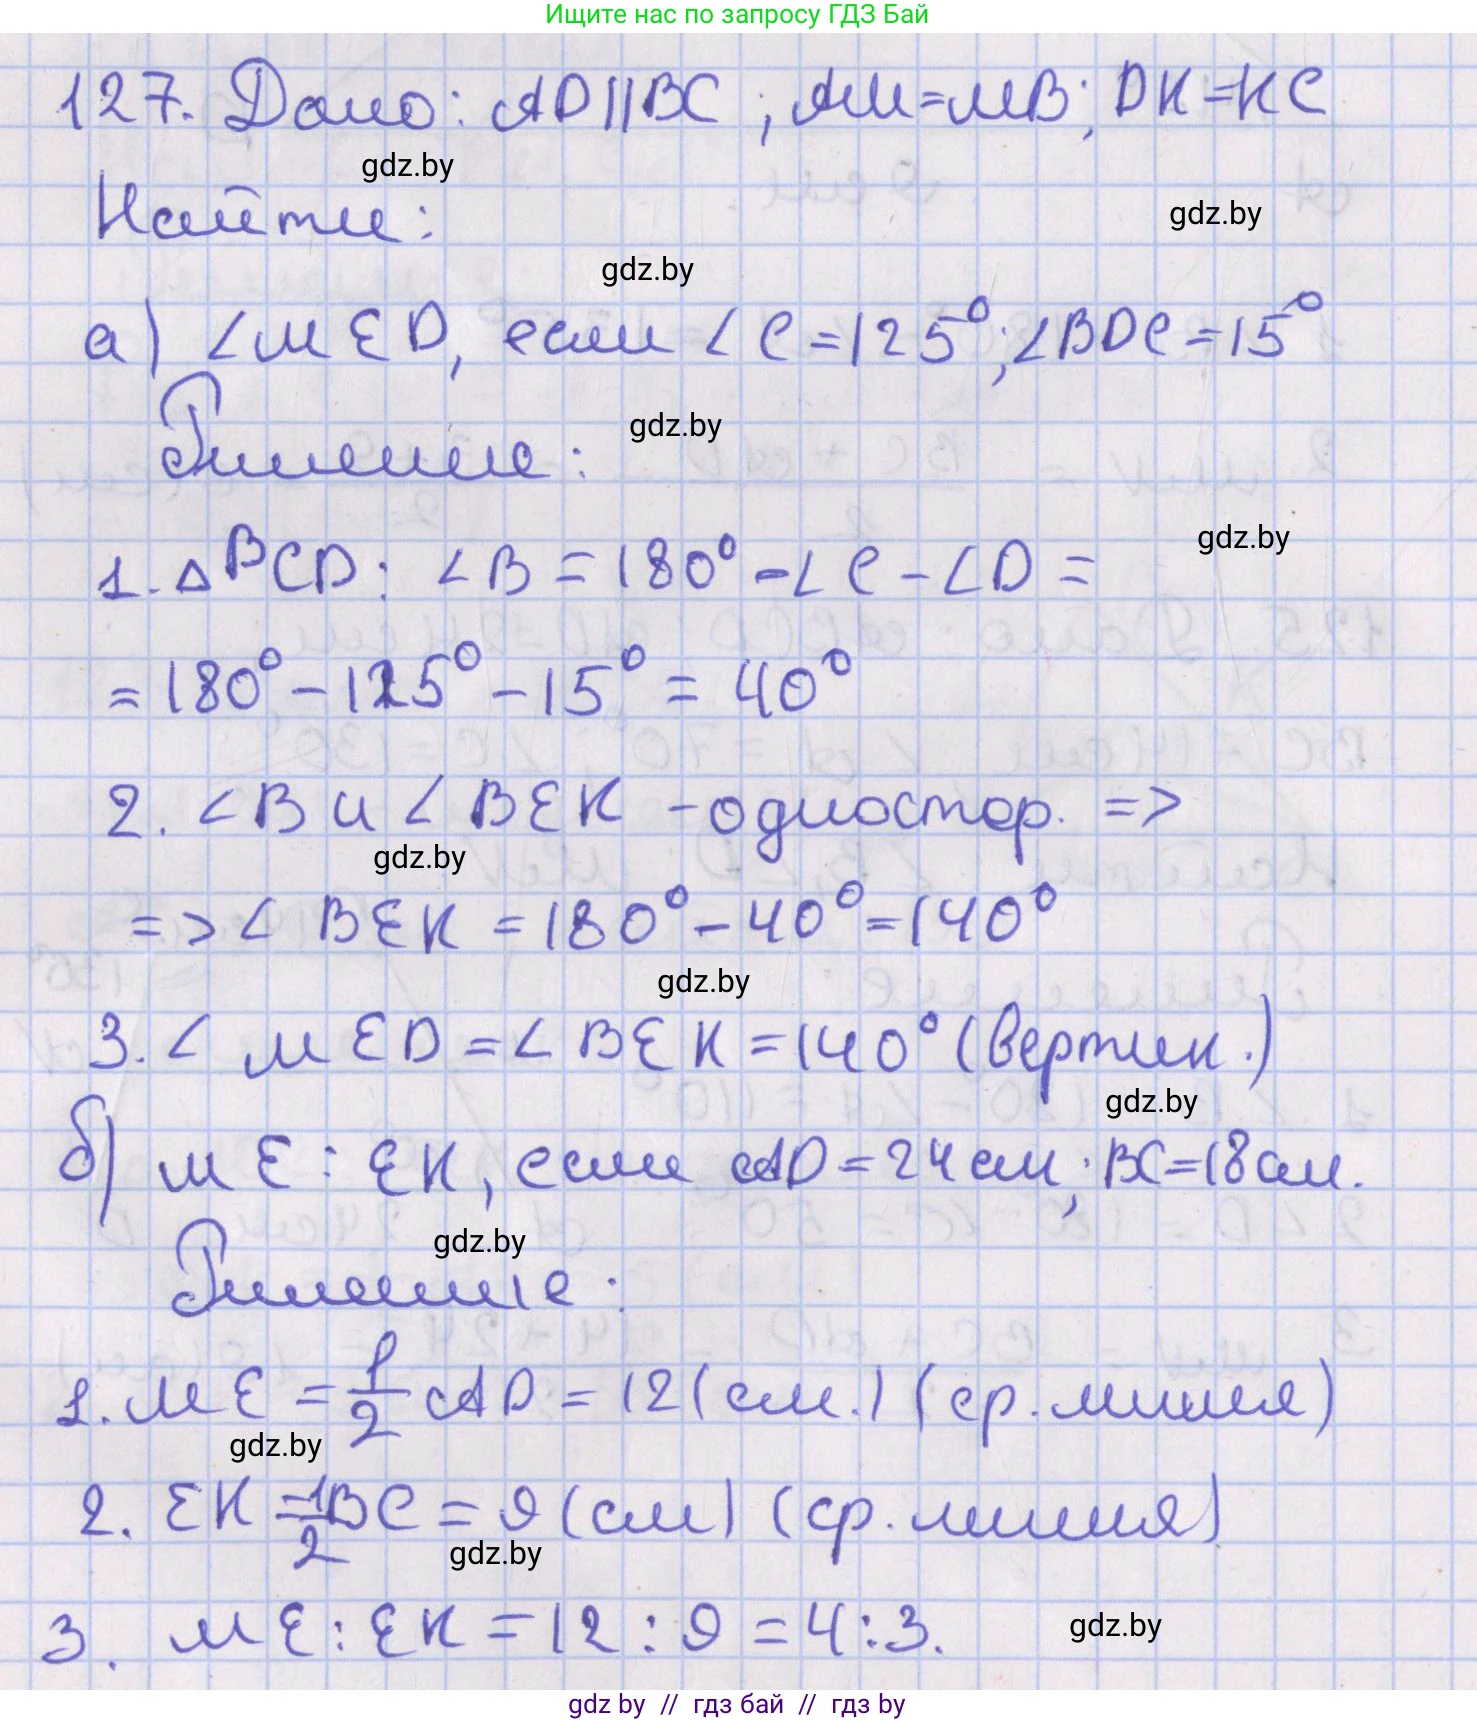 Ищите нас по запросу ГДЗ Бай
127. Дано: AD||BC; AM=MB; DK=KC
gdz.by
Найти:
gdz.by
gdz.by
а) ∠MED, если ∠C=125°; ∠BDC=15°
gdz.by
Решение:
gdz.by
1. △BCD: ∠B = 180° - ∠C - ∠D =
= 180° - 125° - 15° = 40°
2. ∠B и ∠BEK - одностор. =>
gdz.by
=> ∠BEK = 180° - 40° = 140°
gdz.by
3. ∠MED = ∠BEK = 140° (вертик.)
gdz.by
б) ME : EK, если AD = 24 см; BC = 18 см.
gdz.by
Решение:
1. ME = 1/2 AD = 12 (см.) (ср. линия)
gdz.by
2. EK = 1/2 BC = 9 (см) (ср. линия)
gdz.by
3. ME : EK = 12 : 9 = 4 : 3.
gdz.by
gdz by // гдз бай // гдз by